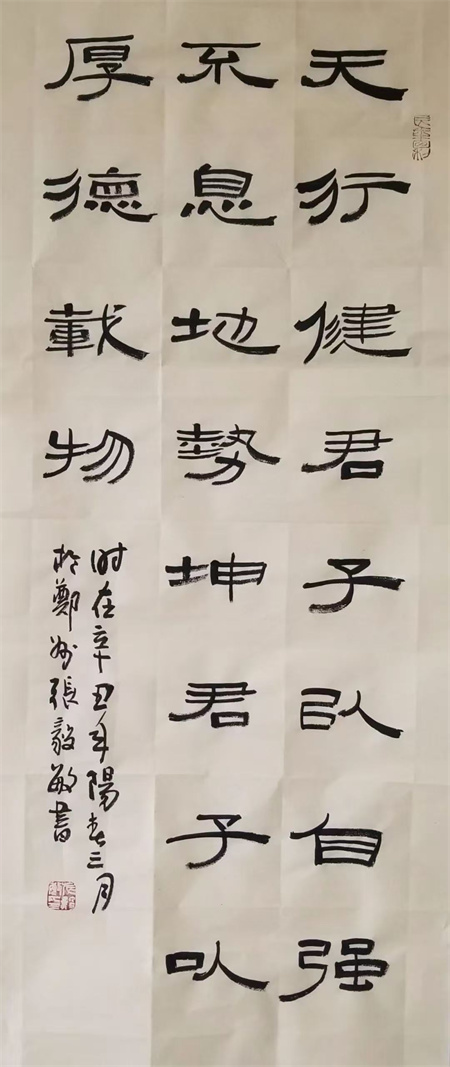 天行健君子以自强
不息地勢坤君子以
厚德載物
时在辛丑年陽春三月
於鄭州張毅敏書